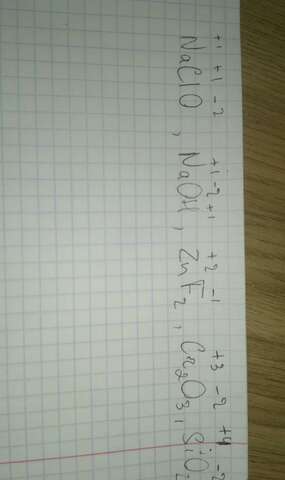 +1 +1 -2 +1 -2 +1 +2 -1 +3 -2 +4 -2
NaClO, NaOH, ZnF2, Cr2O3, SiO2